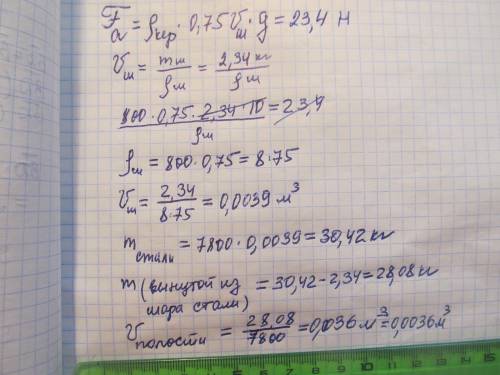 Fₐ = ρкер · 0,75 Vш · g = 23,4 Н
Vш = mш/ρш = 2,34 кг/ρш
800 · 0,75 · 2,34 · 10/ρш = 23,4
ρш = 800 · 0,75 = 8 · 75
Vш = 2,34/8·75 = 0,0039 м³
m стали = 7800 · 0,0039 = 30,42 кг
m (вынутой из шара стали) = 30,42 − 2,34 = 28,08 кг
Vполости = 28,08/7800 = 0,036 м³ = 0,0036 м³
1 2 3 4 5 6 7 8 9 10 11 12 13 14 15